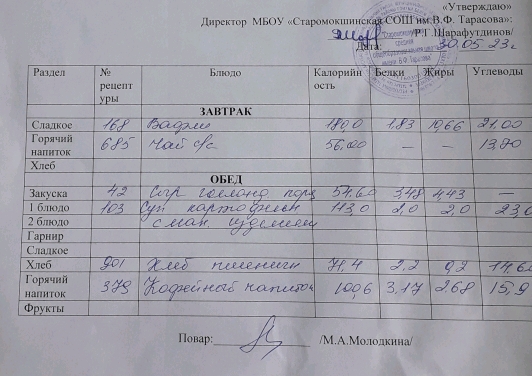 «Утверждаю»
Директор МБОУ «Старомокшинская СОШ им.В.Ф. Тарасова»:
/Р.Г.Шарафутдинов/
Дата: 30.05.23г.
Раздел № рецептуры Блюдо Калорийность Белки Жиры Углеводы
ЗАВТРАК
Сладкое 168 Вафли 180,0 1,83 10,66 21,00
Горячий напиток 685 Чай с/с 56,00 – – 13,70
Хлеб
ОБЕД
Закуска 42 Сыр голланд порц 54,60 3,48 4,43 –
1 блюдо 103 Суп картофельн 113,0 2,0 2,0 23,0
2 блюдо с мак изделиями
Гарнир
Сладкое
Хлеб 901 Хлеб пшеничн 71,4 2,2 0,2 14,6
Горячий напиток 379 Кофейный напиток 100,6 3,17 2,68 15,9
Фрукты
Повар: /М.А.Молодкина/